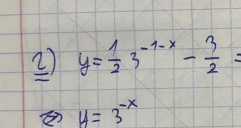 г) y = 1/2 3^{-1-x} - 3/2 =
⇔ y = 3^{-x}